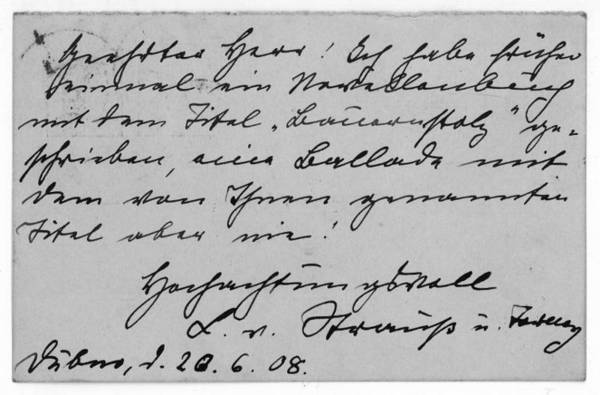 Geehrter Herr! Ich habe früher
einmal ein Novellenbuch
mit dem Titel „Bauernstolz" ge-
schrieben, eine Ballade mit
dem von Ihnen genannten
Titel aber nie!
Hochachtungsvoll
L. v. Strauß u. Torney
d. 20. 6. 08.